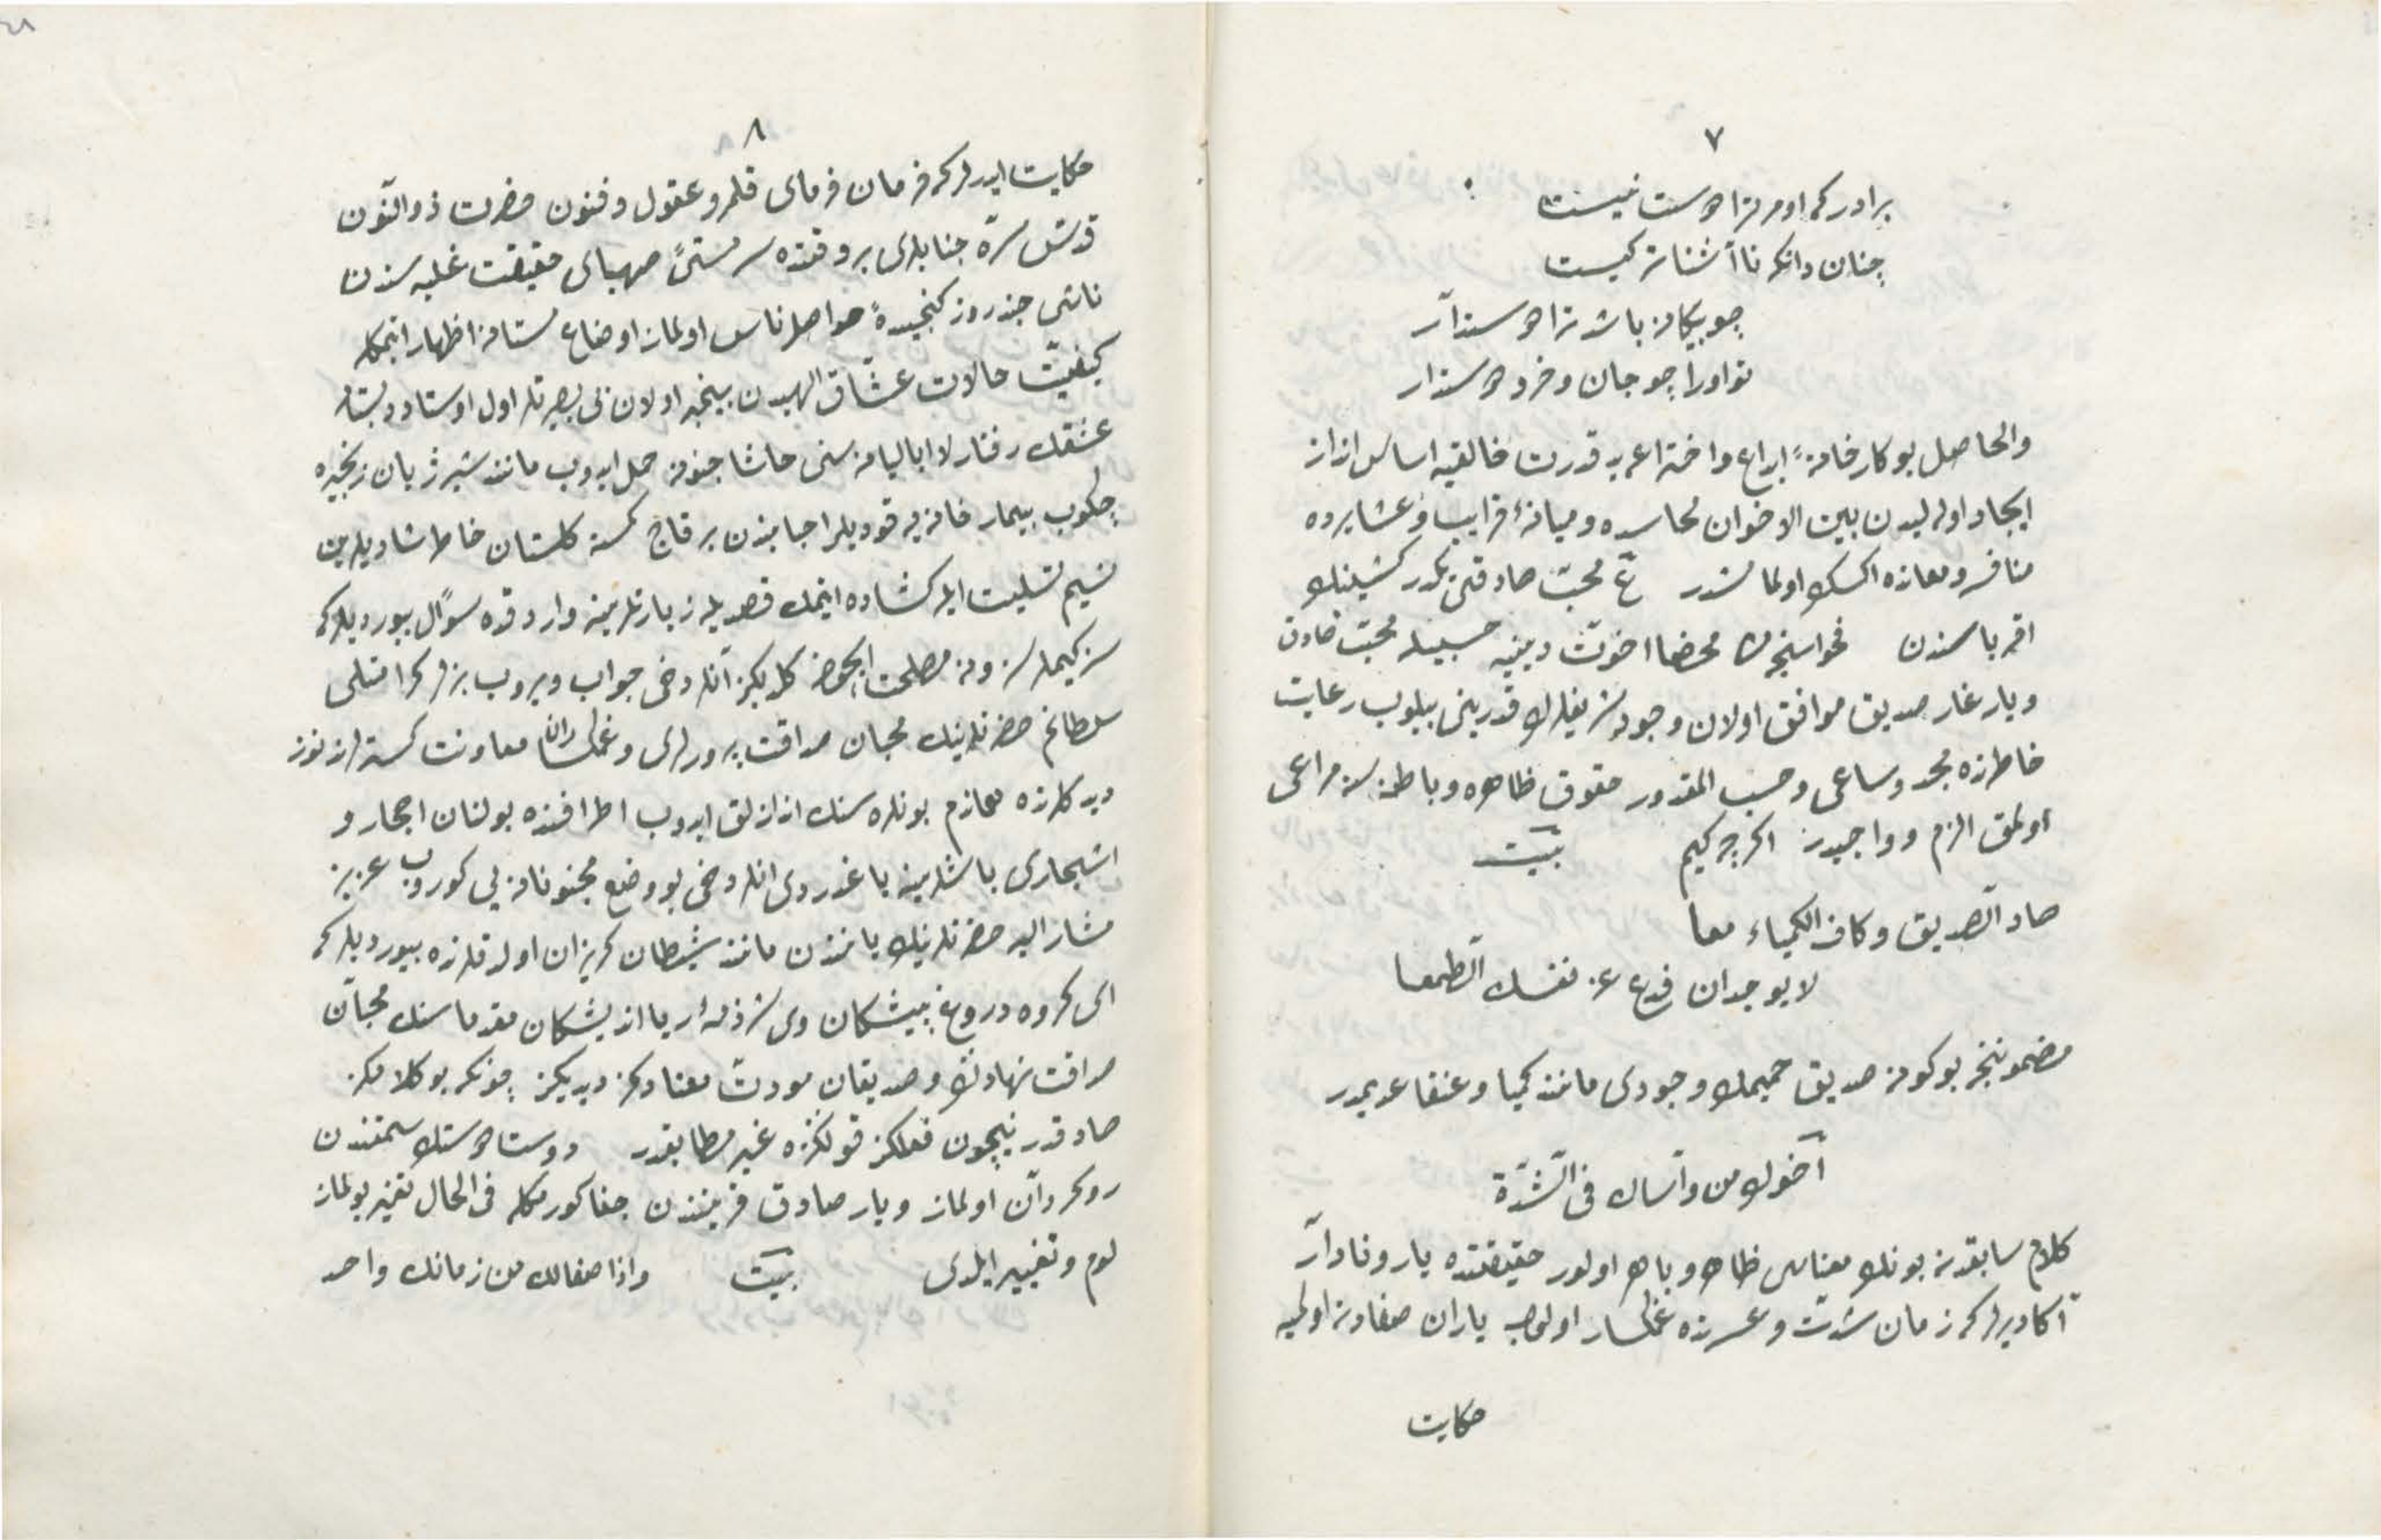 ٧
برادر که او مر ترا دوست نیست
چنان دانکه نا آشنا تر کیست
چو بیکانه باشد ترا دوستدار
تو او را چو جان و خرد دوستدار
والحاصل بو کارخانهٔ ابداع و اختراعه ید قدرت خالقیه اساس انداز
ایجاد اوله لیدن بین الاخوان محاسده و میانهٔ قرایب و عشایرده
منافره و معانده اکسک اولمامشدر ع محبّ صادقی یکدر کشینک
اقرباسندن فحواسنجه محضا اخوّت دینیه حسبیله محبّ صادق
و یار غار صدیق موافق اولان وجود شریفلرک قدرینی بیلوب رعایت
خاطرنده مجد و ساعی و حسب المقدور حقوق ظاهره و باطنه سنه مراعی
اولمق الزم و واجبدر اکرچه کیم بیت
صاد الصدیق و کاف الکیمیاء معا
لا یوجدان فدع عن نفسک الطمعا
مضموننجه بو کونه صدیق حمیمک وجودی مانند کیمیا و عنقا عدیمدر
اخوک من واساک فی الشّدّة
کلام سابقدنه بونک معناسی ظاهر و باهر اولور حقیقتده یار وفادار
آکا دیرلر که زمان شدّت و عسرتده غمکسار اولوب یاران صفادنه اولمیه
حکایت
٨
حکایت ایدرلر که فرمان فرمای قلمرو عقول و فنون حضرت ذو النّون
قدّس سرّه جنابلری بر وقتده سر مستئ صهبای حقیقت غلبه سندن
ناشی چند روز کنجیدهٔ حواصل ناس اولماز اوضاع مستانه اظهار ایتمکله
کیفیّت حالات عشّاق الهیدن بیخبر اولان بی بصیرتلر اول اوستاد دبستان
عشقک رفتار لا ابالیانه سنی حاشا جنونه حمل ایدوب مانند شیر ژیان زنجیره
چکوب بیمارخانه یه قودیلر احبابندن بر قاچ کمسه کلستان خاطر شادیلرین
نسیم تسلیت ایله کشاده ایتمک قصدیله زیارتلرینه واردقده سؤال بیوردیلر که
سز کیملرسز و نه مصلحت ایچون کلدیکز آنلر دخی جواب ویروب بزلر که افتلی
سلطانم حضرتلرینک محبان صداقت پرورلری و غمکسار معاونت کسترلرنوز
دیدکلرنده همان دم بونلره سنک انداز لق ایدوب اطرافنده بولنان احجار و
اشجاری باشلرینه یاغدردی انلر دخی بو وضع مجنونانه یی کوروب عزیز
مشار الیه حضرتلرینک یانندن مانند شیطان کریزان اولدقلرنده بیوردیلر که
ای کروه دروغ پیشکان وی شرذمهٔ ریا اندیشکان مقدما سنک محبّان
صداقت نهادک و صدیقان مودّت معتادکز دیدیکز چونکه بو کلامکز
صادقدر نیچون فعلکز قولکزه غیر مطابقدر دوست دوستک سمتندن
روکردان اولماز و یار صادق قرینندن جفا کورمکله فی الحال تغیّر بولماز
لوم و تغییر ایلدی بیت واذا صفا لک من زمانک واحد